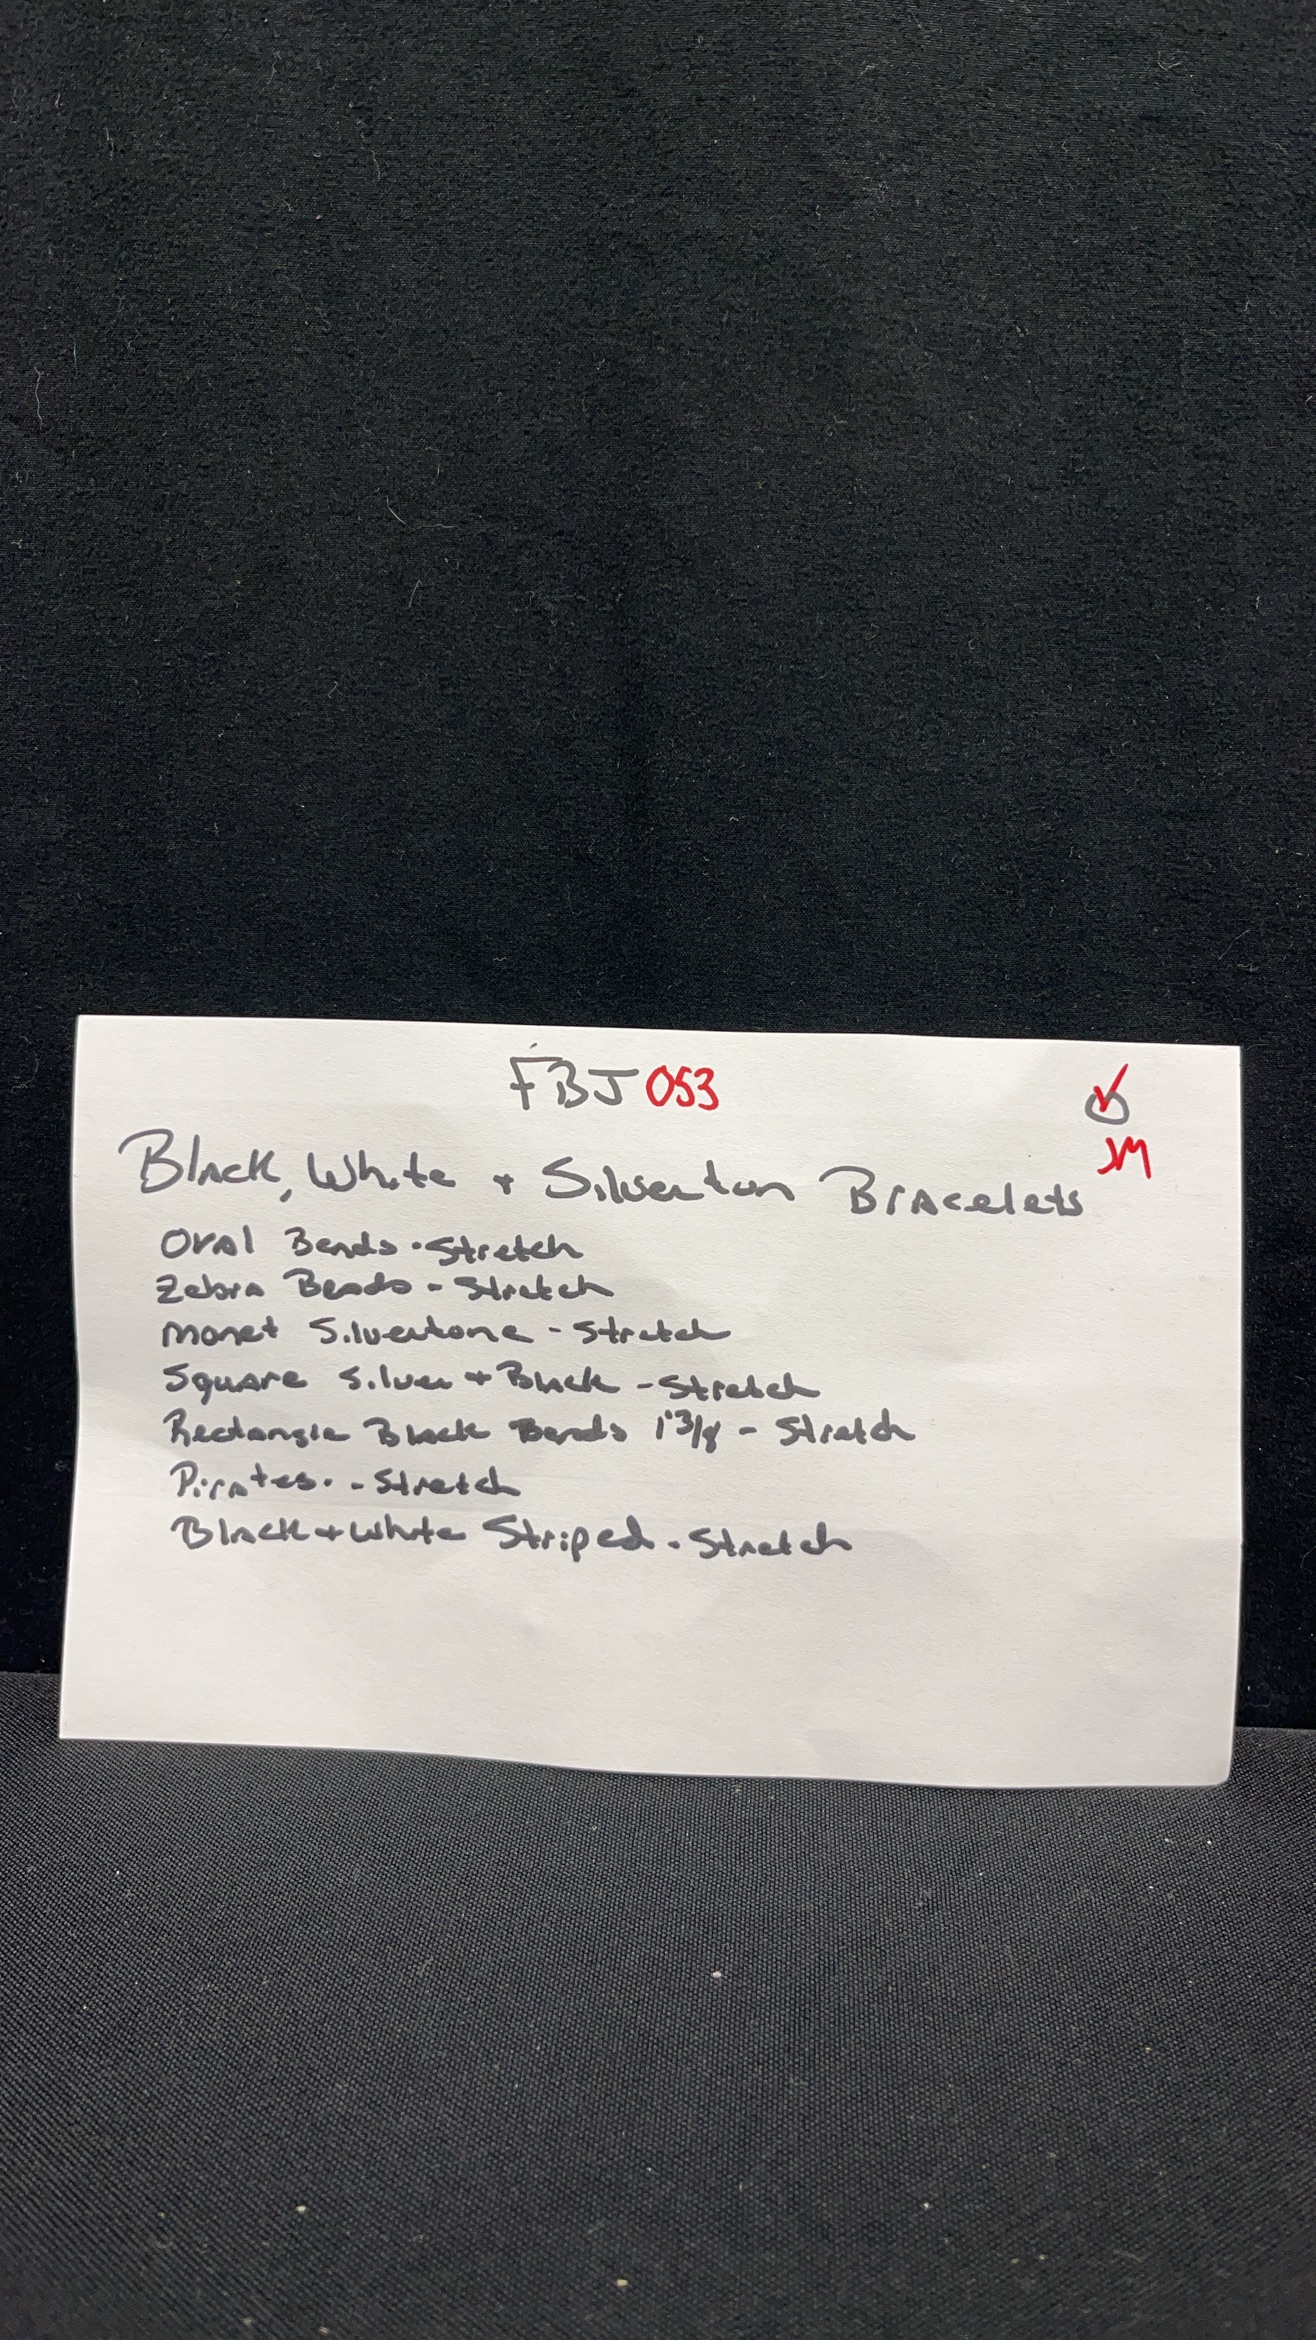 FBJ 053
JM
Black, White + Silverton Bracelets
Oval Beads - Stretch
Zebra Beads - Stretch
Monet Silvertone - Stretch
Square Silver + Black - Stretch
Rectangle Black Beads 1 3/8 - Stretch
Pirates. - Stretch
Black + White Striped - Stretch